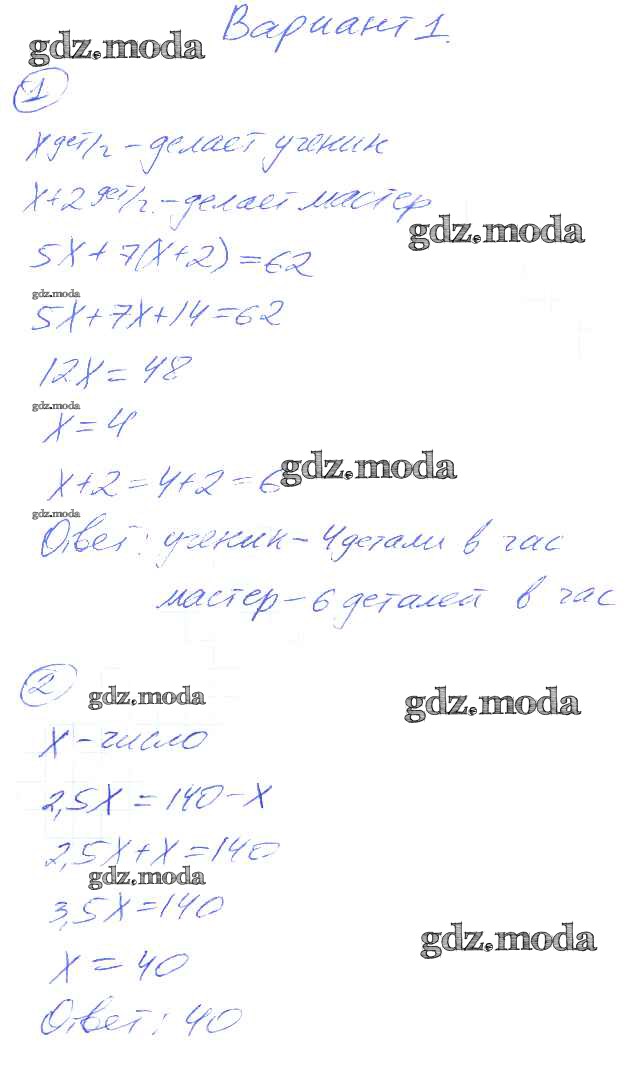 Вариант 1.
gdz.moda
1
x дет/г - делает ученик
x+2 дет/г. - делает мастер
gdz.moda
5x+7(x+2)=62
gdz.moda
5x+7x+14=62
12x=48
gdz.moda
x=4
x+2=4+2=6
gdz.moda
gdz.moda
Ответ: ученик - 4 детали в час
мастер - 6 деталей в час
2
gdz.moda
gdz.moda
x - число
2,5x=140-x
2,5x+x=140
gdz.moda
3,5x=140
gdz.moda
x=40
Ответ: 40